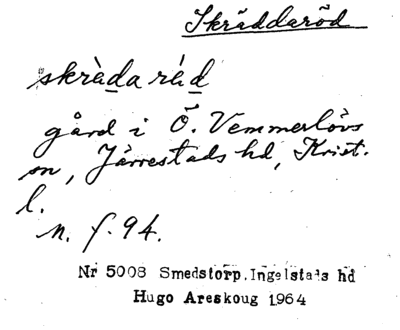 Skräddaröd
skràda rö́d
gård i Ö. Vemmerlövs
sn, Järrestads hd, Krist.
l.
m. f. 94.
Nr 5008 Smedstorp. Ingelstads hd
Hugo Areskoug 1964